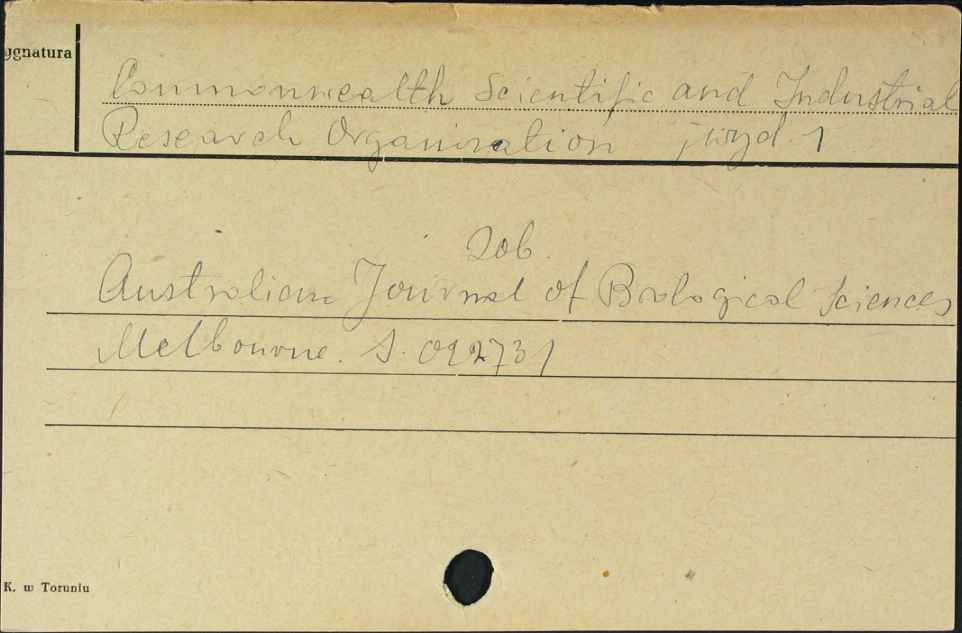 ygnatura
Commonwealth Scientific and Industrial
Research Organisation jwyd. 1
Zob.
Australian Journal of Biological Sciences
Melbourne. S. 092731
K. w Toruniu